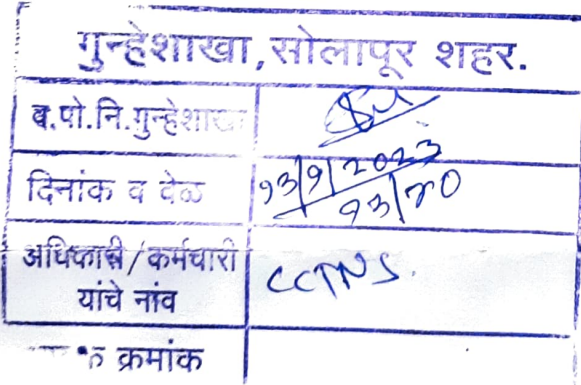 गुन्हेशाखा,सोलापूर शहर.
व.पो.नि.गुन्हेशाखा
दिनांक व वेळ १३/९/२०२३
१३/४०
अधिकारी/कर्मचारी CCTNS.
यांचे नांव
क्रमांक